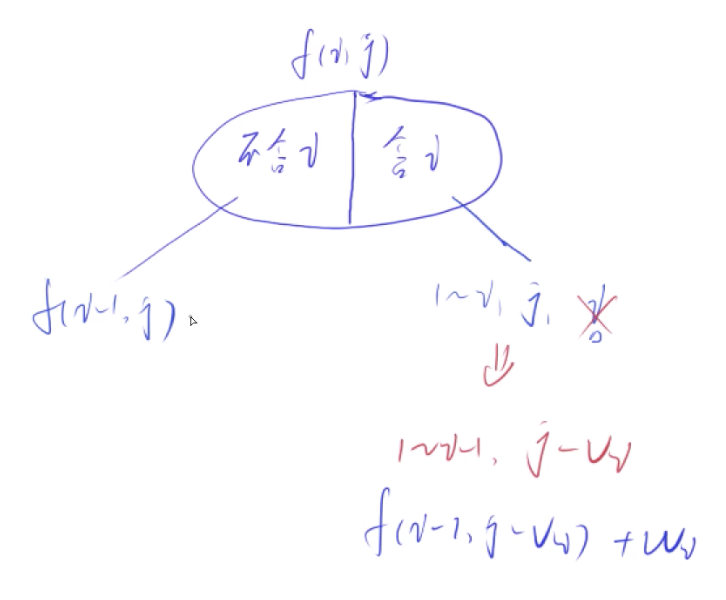 f(i, j)
不含 i 含 i
f(i-1, j)
1~i, j,
1~i-1, j-vi
f(i-1, j-vi) + wi